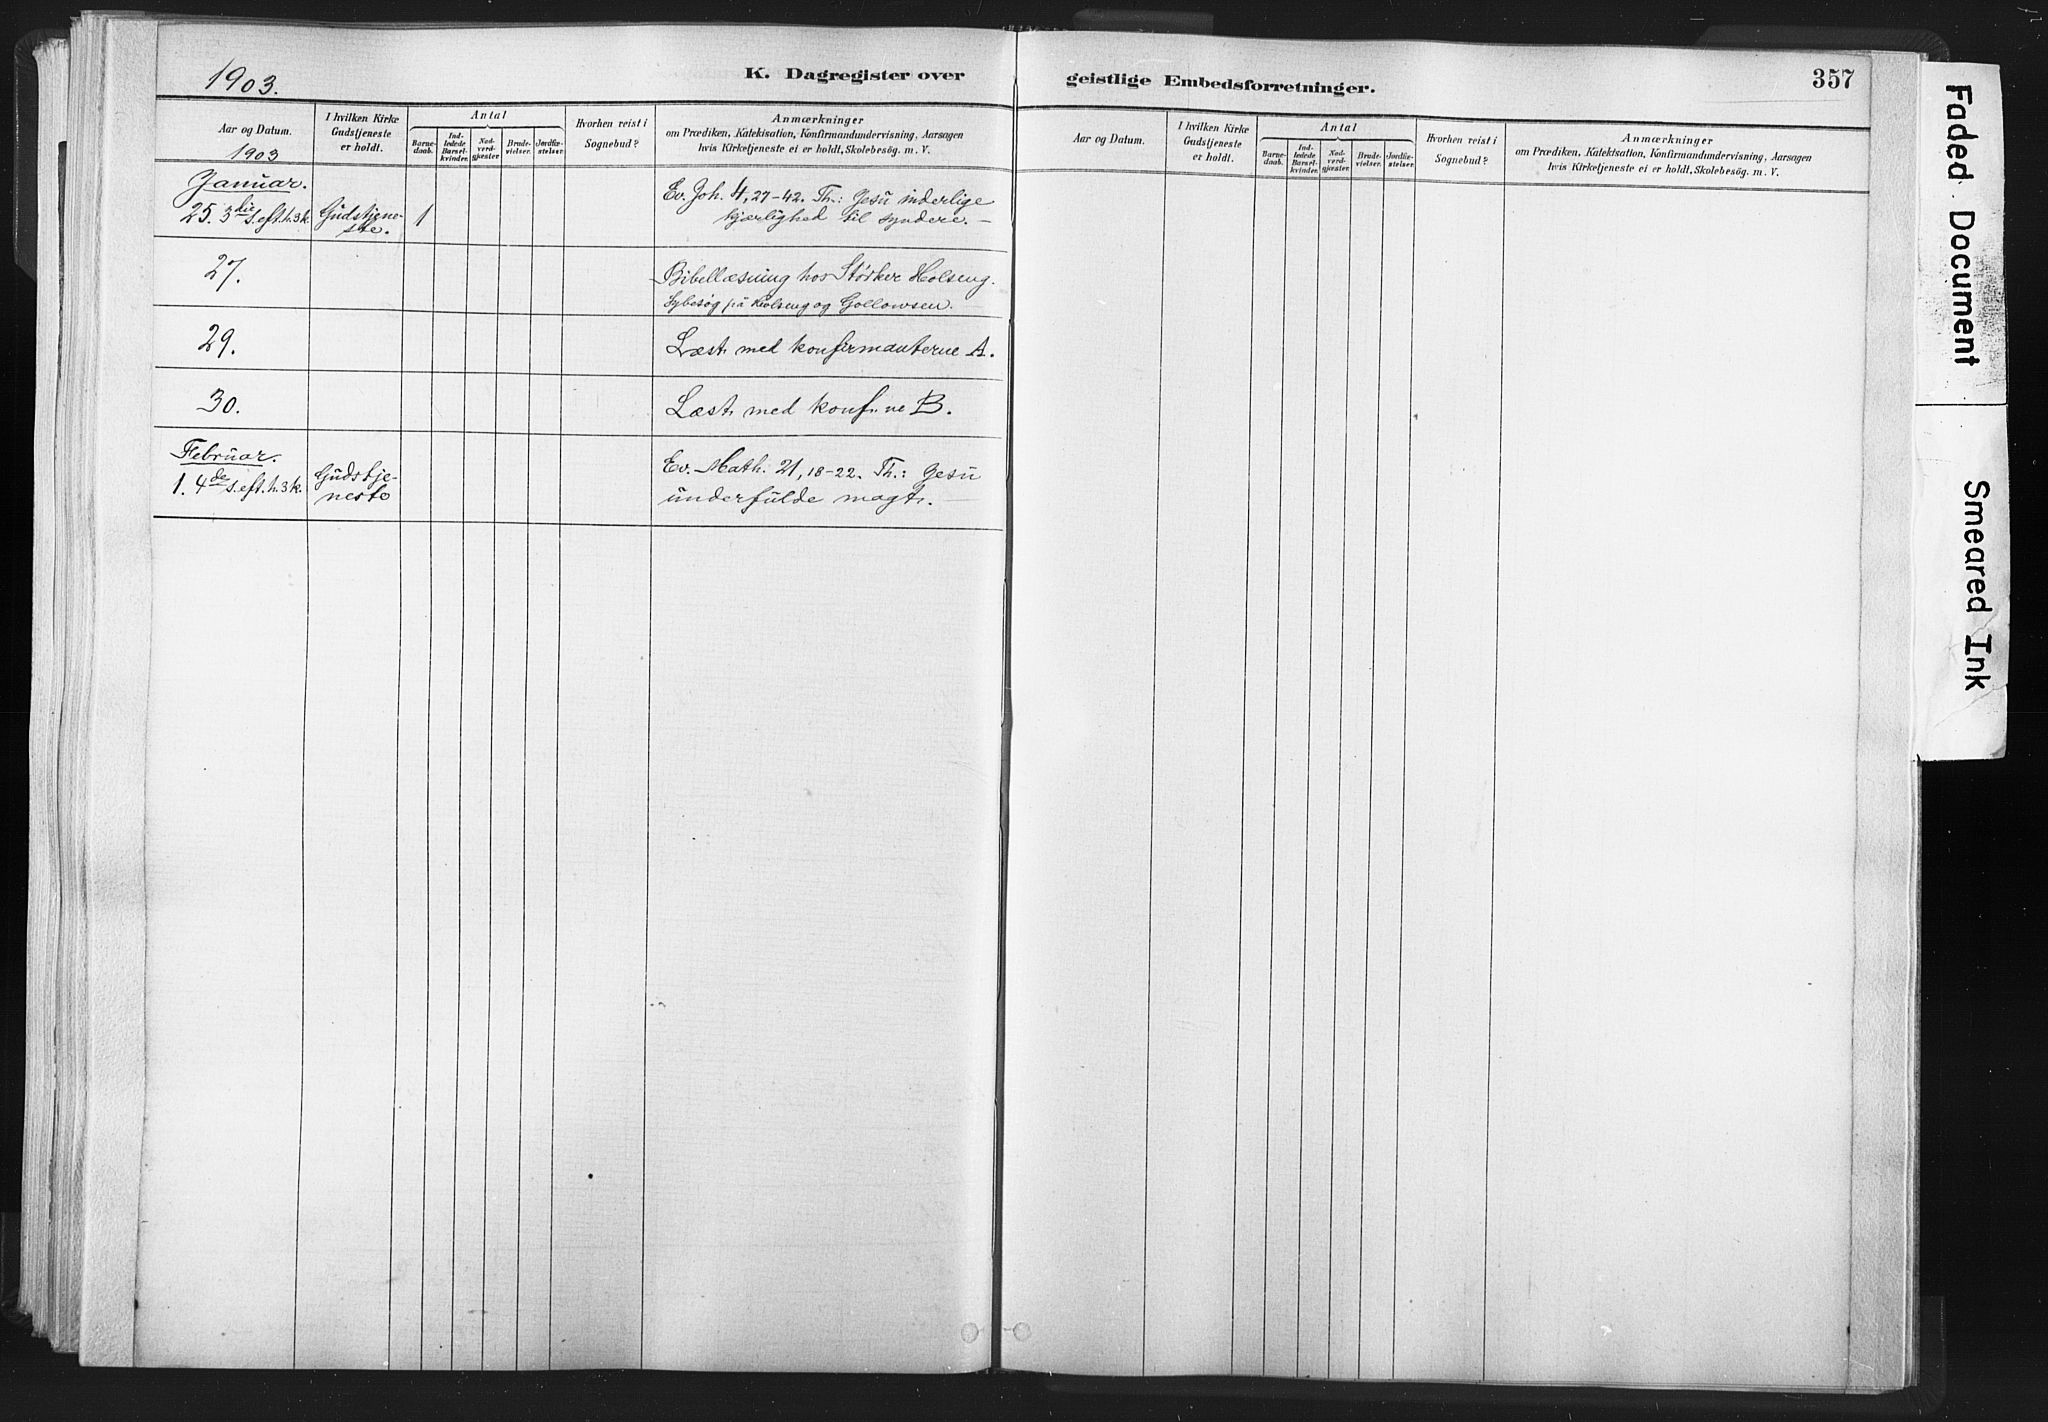 1903.
K. Dagregister over
geistlige Embedsforretninger.
357
Aar og Datum.
1903
I hvilken Kirke
Gudstjeneste
er holdt.
Antal
Barne-
daab.
Ind-
ledede
Barsel-
kvinder.
Nad-
verd-
gjester
Brude-
vielser.
Jordfæ-
stelser.
Hvorhen reist i
Sognebud?
Anmærkninger
om Prædiken, Katekisation, Konfirmandundervisning, Aarsagen
hvis Kirketjeneste ei er holdt, Skolebesög. m. V.
Januar.
25. 3die s. eft. h. 3 k.
Gudstjene-
ste.
1
Ev. Joh. 4, 27-42. Th.: Jesu inderlige
kjærlighed til syndere. —
27.
Bibellæsning hos Størker Holseng.
Sybesøg på Holseng og
29.
Læst med konfirmanterne A.
30.
Læst med konf.ne B.
Februar.
1. 4de s. eft. h. 3 k.
Gudstje-
neste
Ev. Math. 21, 18-22. Th.: Jesu
underfulde magt. —
Aar og Datum.
I hvilken Kirke
Gudstjeneste
er holdt.
Antal
Barne-
daab.
Ind-
ledede
Barsel-
kvinder.
Nad-
verd-
gjester
Brude-
vielser.
Jordfæ-
stelser.
Hvorhen reist i
Sognebud?
Anmærkninger
om Prædiken, Katekisation, Konfirmandundervisning, Aarsagen
hvis Kirketjeneste ei er holdt, Skolebesög. m. V.
Faded Document
Smeared Ink